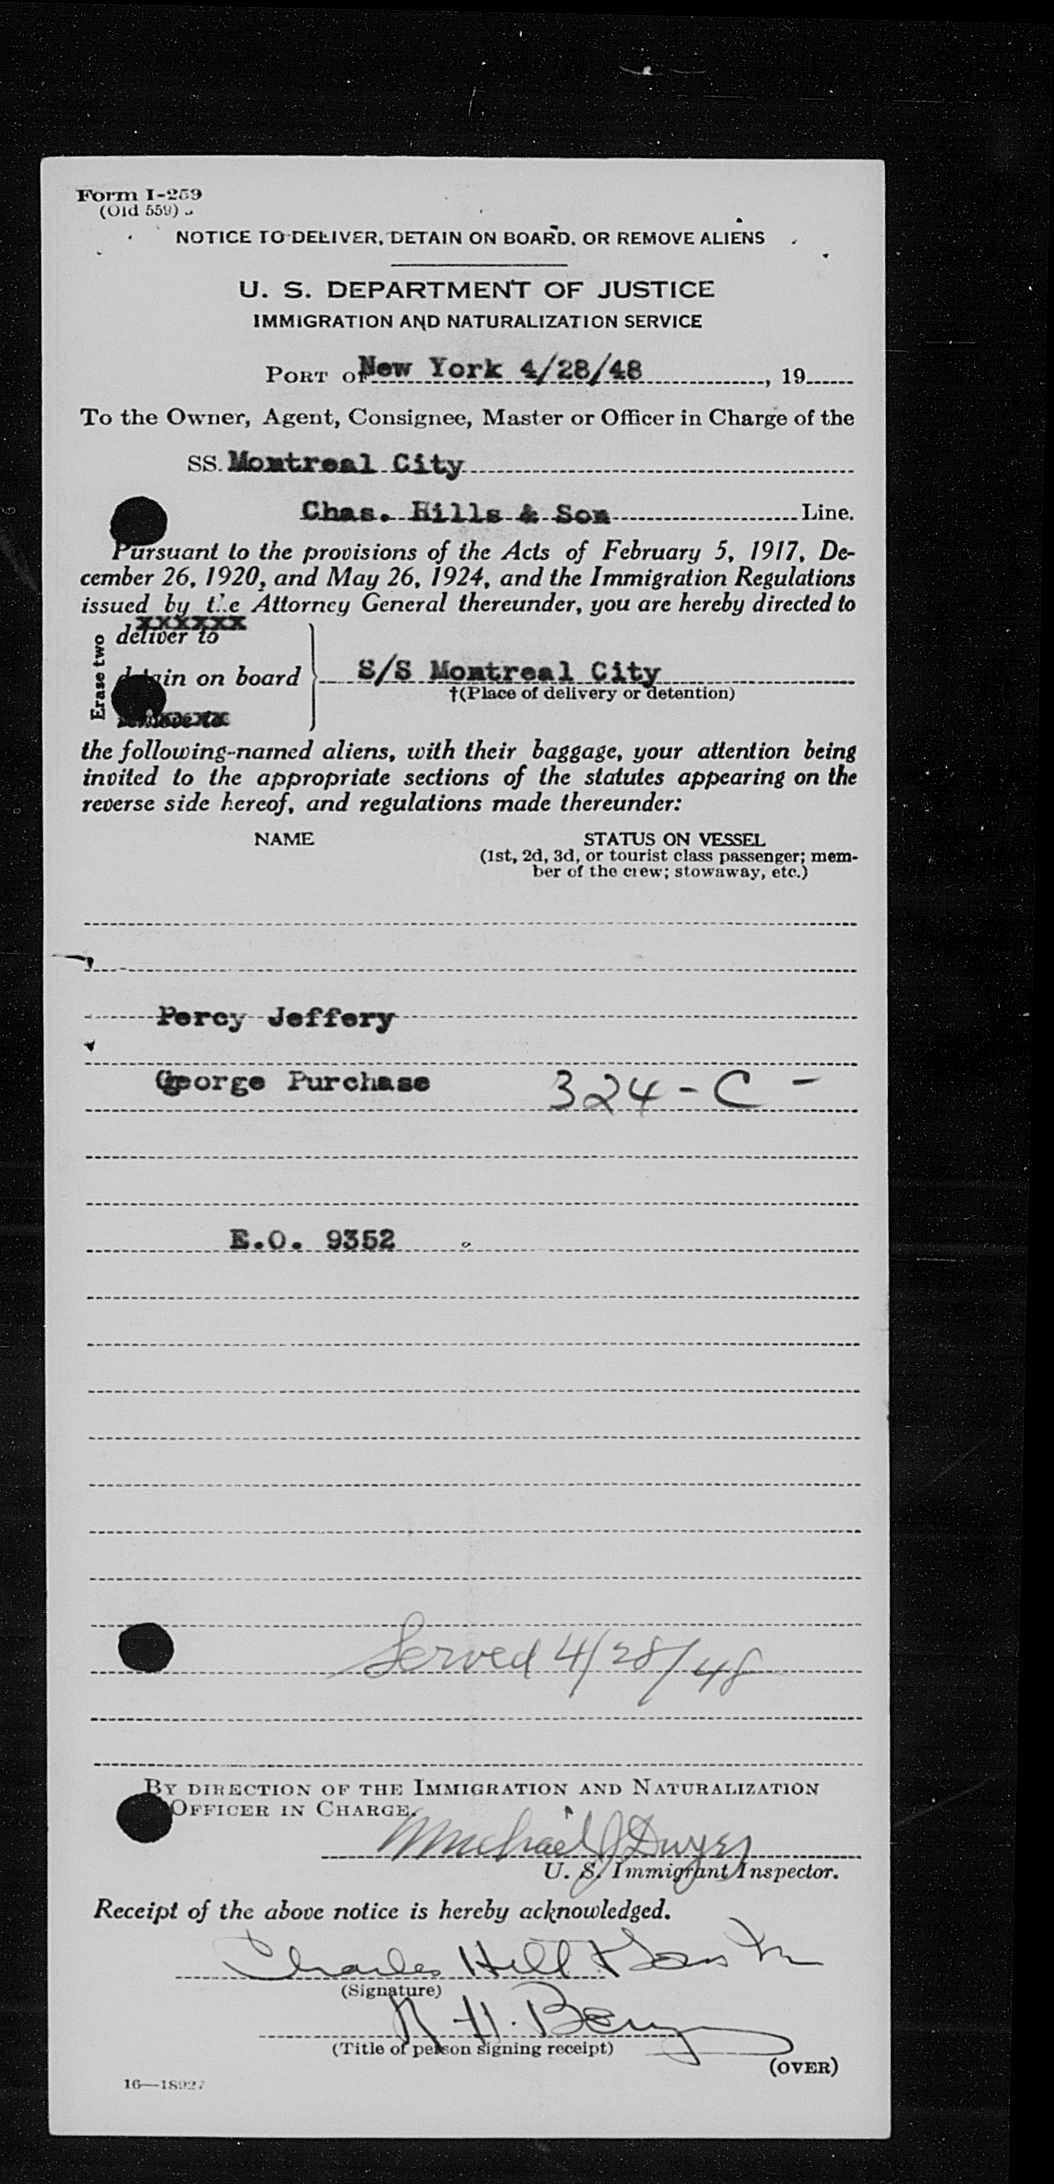 Form I-259
(Old 559)
NOTICE TO DELIVER, DETAIN ON BOARD, OR REMOVE ALIENS
U. S. DEPARTMENT OF JUSTICE
IMMIGRATION AND NATURALIZATION SERVICE
PORT OF New York 4/28/48, 19
To the Owner, Agent, Consignee, Master or Officer in Charge of the
SS. Montreal City
Chas. Hills & Son Line.
Pursuant to the provisions of the Acts of February 5, 1917, De-
cember 26, 1920, and May 26, 1924, and the Immigration Regulations
issued by the Attorney General thereunder, you are hereby directed to
xxxxxxx
deliver to
Erase two
detain on board S/S Montreal City
†(Place of delivery or detention)
the following-named aliens, with their baggage, your attention being
invited to the appropriate sections of the statutes appearing on the
reverse side hereof, and regulations made thereunder:
NAME STATUS ON VESSEL
(1st, 2d, 3d, or tourist class passenger; mem-
ber of the crew; stowaway, etc.)
Percy Jeffery
George Purchase 324-C-
E.O. 9352
Served 4/28/48
BY DIRECTION OF THE IMMIGRATION AND NATURALIZATION
OFFICER IN CHARGE.
Michael J Dwyer
U. S. Immigrant Inspector.
Receipt of the above notice is hereby acknowledged.
Charles Hill & Sons
(Signature)
R H. Berry
(Title of person signing receipt)
(OVER)
16—18927